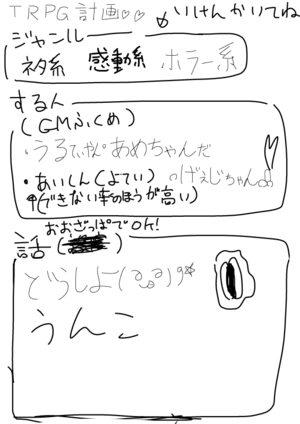 TRPG計画♡♡ いけんかいてね
ジャンル
ネタ系 感動系 ホラー系
する人
(GMふくめ)
・うるてぃやん あめちゃんだ
・あいしん(よてい) げえじちゃん
(できない率のほうが高い)
おおざっぱでOK!
話
どうしよ
うんこ